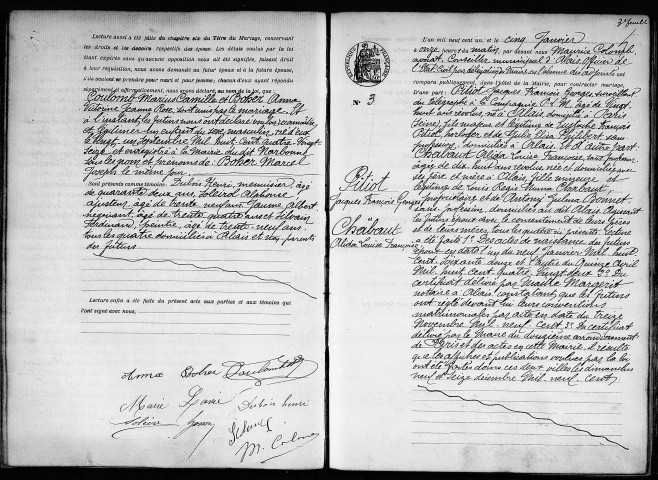 Lecture aussi a été faite du chapitre six du Titre du Mariage, concernant
les droits et les devoirs respectifs des époux. Les délais voulus par la loi
étant expirés sans qu'aucune opposition nous ait été signifiée, faisant droit
à leur réquisition, nous avons demandé au futur époux et à la future épouse,
s'ils veulent se prendre pour mari et pour femme; chacun d'eux ayant répondu
séparément et affirmativement, nous avons déclaré, au nom de la loi, que
Coulomb Marius Camille et Boher Anna
Victorine Jeanne Rose sont unis par le mariage. Et
à l'instant, les futurs nous ont déclaré vouloir reconnaître
et légitimer un enfant du sexe masculin, né d'eux
le vingt un septembre mil huit cent quatre vingt
et enregistré à la Mairie du dit Narbonne
sous les nom et prénoms de Boher Marcel
Joseph le même jour.
Sont présents comme témoins: Dubois Henri, menuisier, âgé
de quarante deux ans, Soleirol Alphonse
ajusteur, âgé de trente neuf ans, Jaume Albert,
négociant, âgé de trente quatre ans et Silvain
Ferdinand, peintre, âgé de trente neuf ans.
tous les quatre domiciliés à Alais et non parents
des futurs
Lecture enfin a été faite du présent acte aux parties et aux témoins qui
l'ont signé avec nous,
Anna Boher Coulomb
Marie Dubois henri
M. Colomb
3e feuillet
L'an mil neuf cent un, et le cinq Janvier
à onze heures du matin, par devant nous Maurice Colomb
avocat, Conseiller municipal d'Alais, officier de
l'État civil par délégation du Maire,
comparu publiquement, dans l'hôtel de la Mairie, pour contracter mariage.
D'une part: Pitiot Jacques François Georges, surveillant
du télégraphe à la Compagnie P.L.M. âgé de vingt
huit ans révolus, né à Alais, domicilié à Paris
fils majeur et légitime de François
Pitiot,
profession, domiciliés à Alais. Et d'autre part:
Chabaut Alida Louise Françoise, sans profession,
âgée de dix huit ans révolus, née et domiciliée avec
ses père et mère à Alais, fille mineure et
légitime de Louis Régis Chabaut
propriétaire et de Antony Julie Bonnet
sans profession, domiciliés au dit Alais
les futurs époux avec le consentement de leurs pères
et de leurs mères, tous les quatre ici présents. Lecture
a été faite 1° Des actes de naissance des futurs
époux en date l'un du neuf janvier mil huit
cent soixante douze et l'autre du quinze avril
mil huit cent quatre vingt deux; 2° Du
certificat délivré par Maître Margerit
notaire à Alais constatant que les futurs
ont réglé devant lui leurs conventions
matrimoniales par acte en date du treize
Novembre mil neuf cent. 3° Du certificat
délivré par le Maire du douzième arrondissement
de Paris et des actes en cette Mairie, il résulte
que les affiches et publications voulues par la loi
ont été faites dans ces deux villes les dimanches
neuf et seize décembre mil neuf cent,
N° 3
Pitiot
Jacques François Georges
&
Chabaut
Alida Louise Françoise